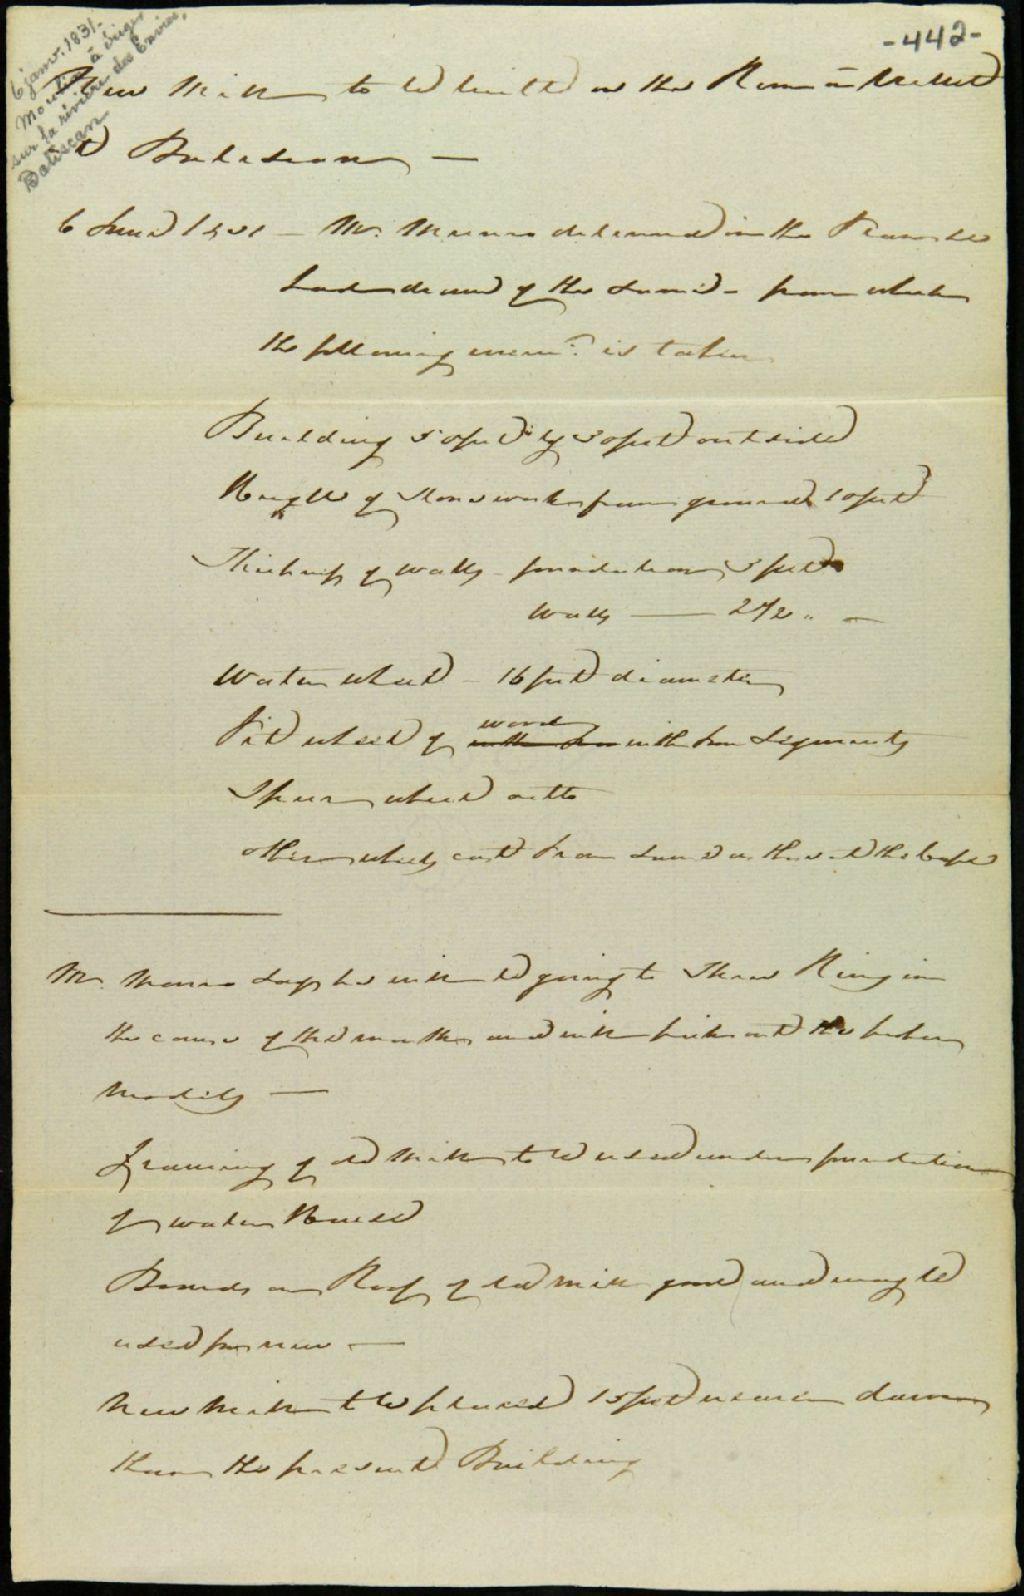 -442-
6 janv. 1831.
Moulin à ériger
sur la rivière des Envies,
Batiscan
New Mill to be built on the River à Veillet
at Batiscan —
6 Jany 1831 — Mr. Munro delivered in the
of the same — from which
the following mem: is taken
Building 50 feet by 30 feet outside
Height of Stone work from ground 10 feet
Thickness of walls — foundation 3 feet
Walls — 2 1/2 " —
Water wheel — 16 feet diameter
Pit wheel of wood with Iron Segments
Spur wheel ditto
other wheels cast Iron same as those at the
Mr. Munro says he will be going to Three Rivers in
the course of the month and will pick out the
Models —
Framing of old Mill to be used under foundation
of water House
Boards on Roof of old mill good and may be
used for new —
New Mill to be placed 15 feet nearer dam
than the present Building